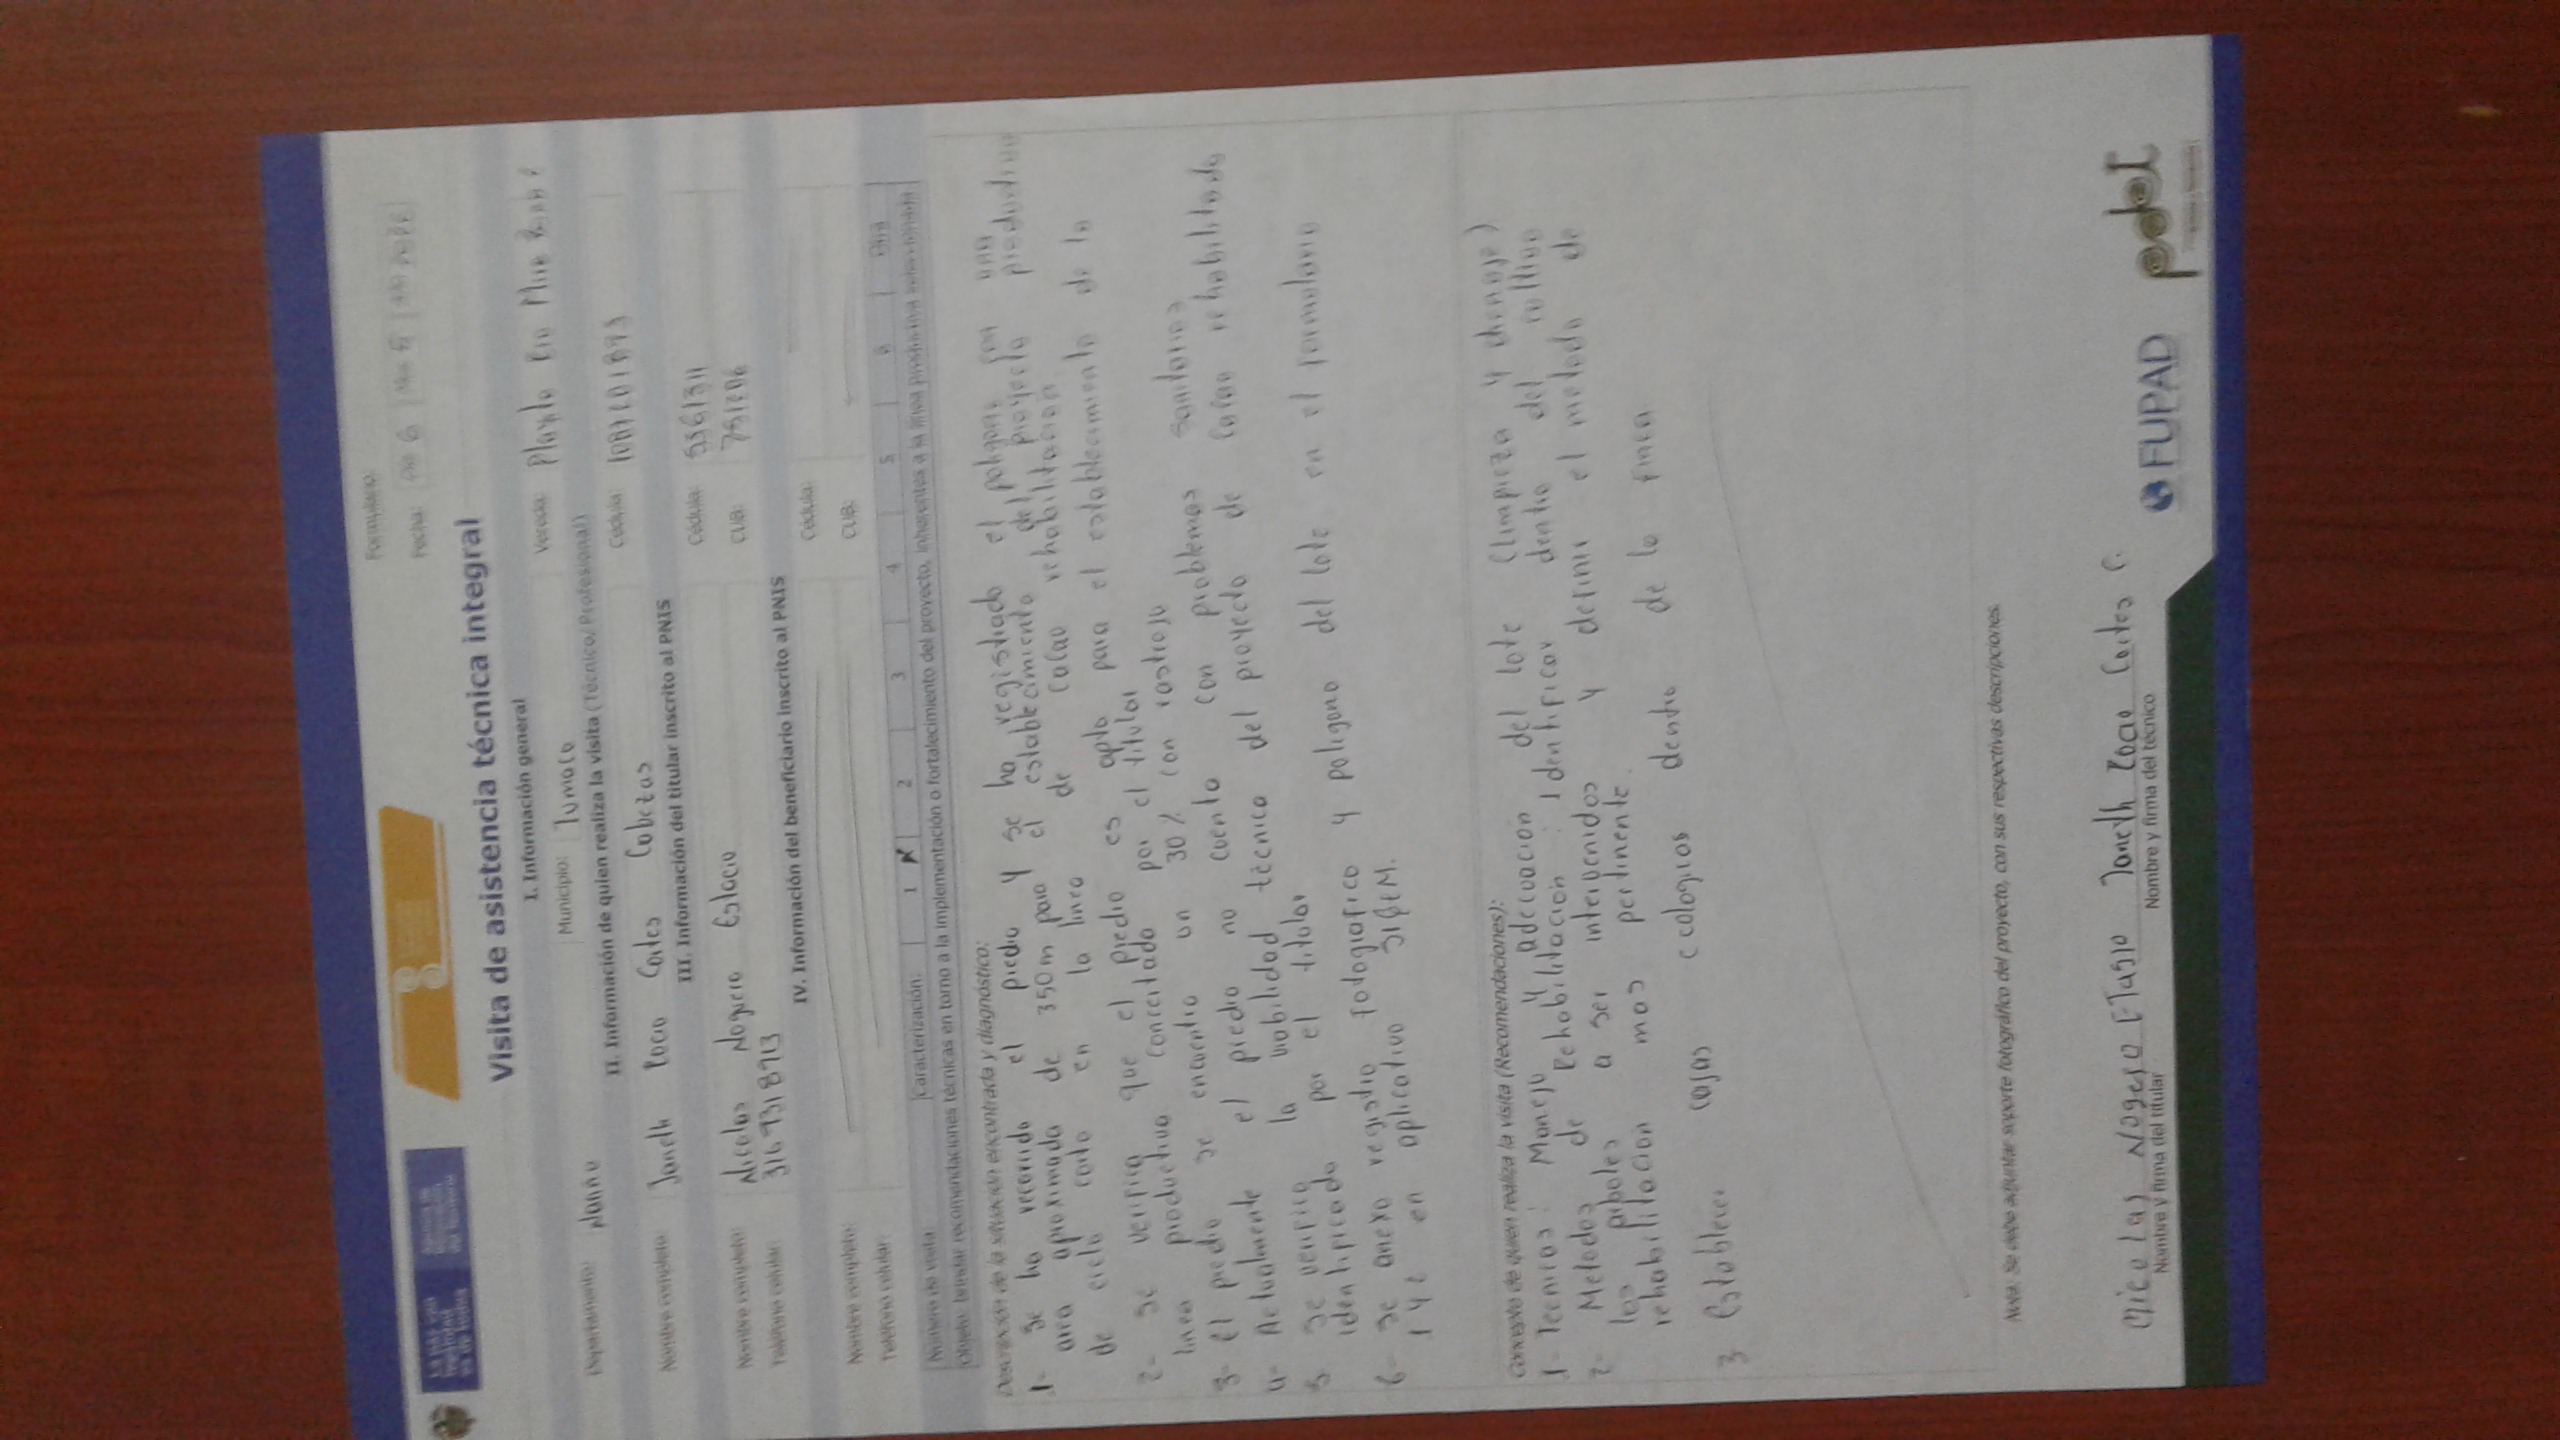 Formulario:
Fecha:
Visita de asistencia técnica integral
I. Información general
Departamento: Nariño Municipio: Tumaco Vereda: Playita Rio Mira
II. Información de quien realiza la visita (Técnico/Profesional)
Nombre completo: Janeth Rocio Cortes Cabezas Cédula:
III. Información del titular inscrito al PNIS
Nombre completo: Nicolas Noguera Estacio Cédula: 5361311
Teléfono celular: 316 931 8913 CUB:
IV. Información del beneficiario inscrito al PNIS
Nombre completo: Cédula:
Teléfono celular: CUB:
Número de visita: Caracterización: 1 X 2 3 4 5 6 Otra
Objeto: brindar recomendaciones técnicas en torno a la implementación o fortalecimiento del proyecto, inherentes a la línea productiva
Descripción de la situación encontrada y diagnóstico:
1- se ha recorrido el predio y se ha registrado el poligono con una
area aproximada de 350 m para el establecimiento del proyecto productivo
de ciclo corto en la linea de cacao rehabilitacion
2- se verifia que el predio es apto para el establecimiento de la
linea productiva concertada por el titular
3- el predio se encuentra un 30% con rastrojo
4- Actualmente el predio no cuenta con problemas sanitarios
5- se verifia la viabilidad tecnica del proyecto de cacao rehabilitado
identificado por el titular
6- se anexo registro fotografico y poligono del lote en el formulario
1 y 2 en aplicativo
Concepto de quien realiza la visita (Recomendaciones):
1- Tecnicas: Manejo y adecuacion del lote (limpieza y drenaje)
2- Metodos de Rehabilitacion: identificar dentro del cultivo
los arboles a ser intervenidos y definir el metodo de
rehabilitacion mas pertinente.
3 Establecer cajas ecologicas dentro de la finca.
Nota: Se debe adjuntar soporte fotográfico del proyecto, con sus respectivas descripciones.
Janeth Rocio Cortes C.
Nombre y firma del titular Nombre y firma del técnico
FUPAD
pdet